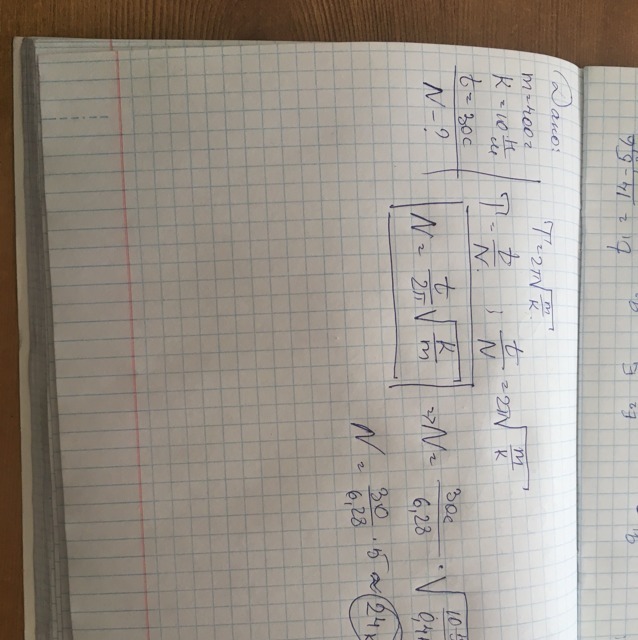 2) Дано:
m=400г
k=10 Н/м
t=30с
N-?
T=2π√(m/k)
T=t/N ; t/N=2π√(m/k)
N=t/2π √(k/m) => N=30с/6,28 · √
N=30/6,28 · 5 ≈ 24